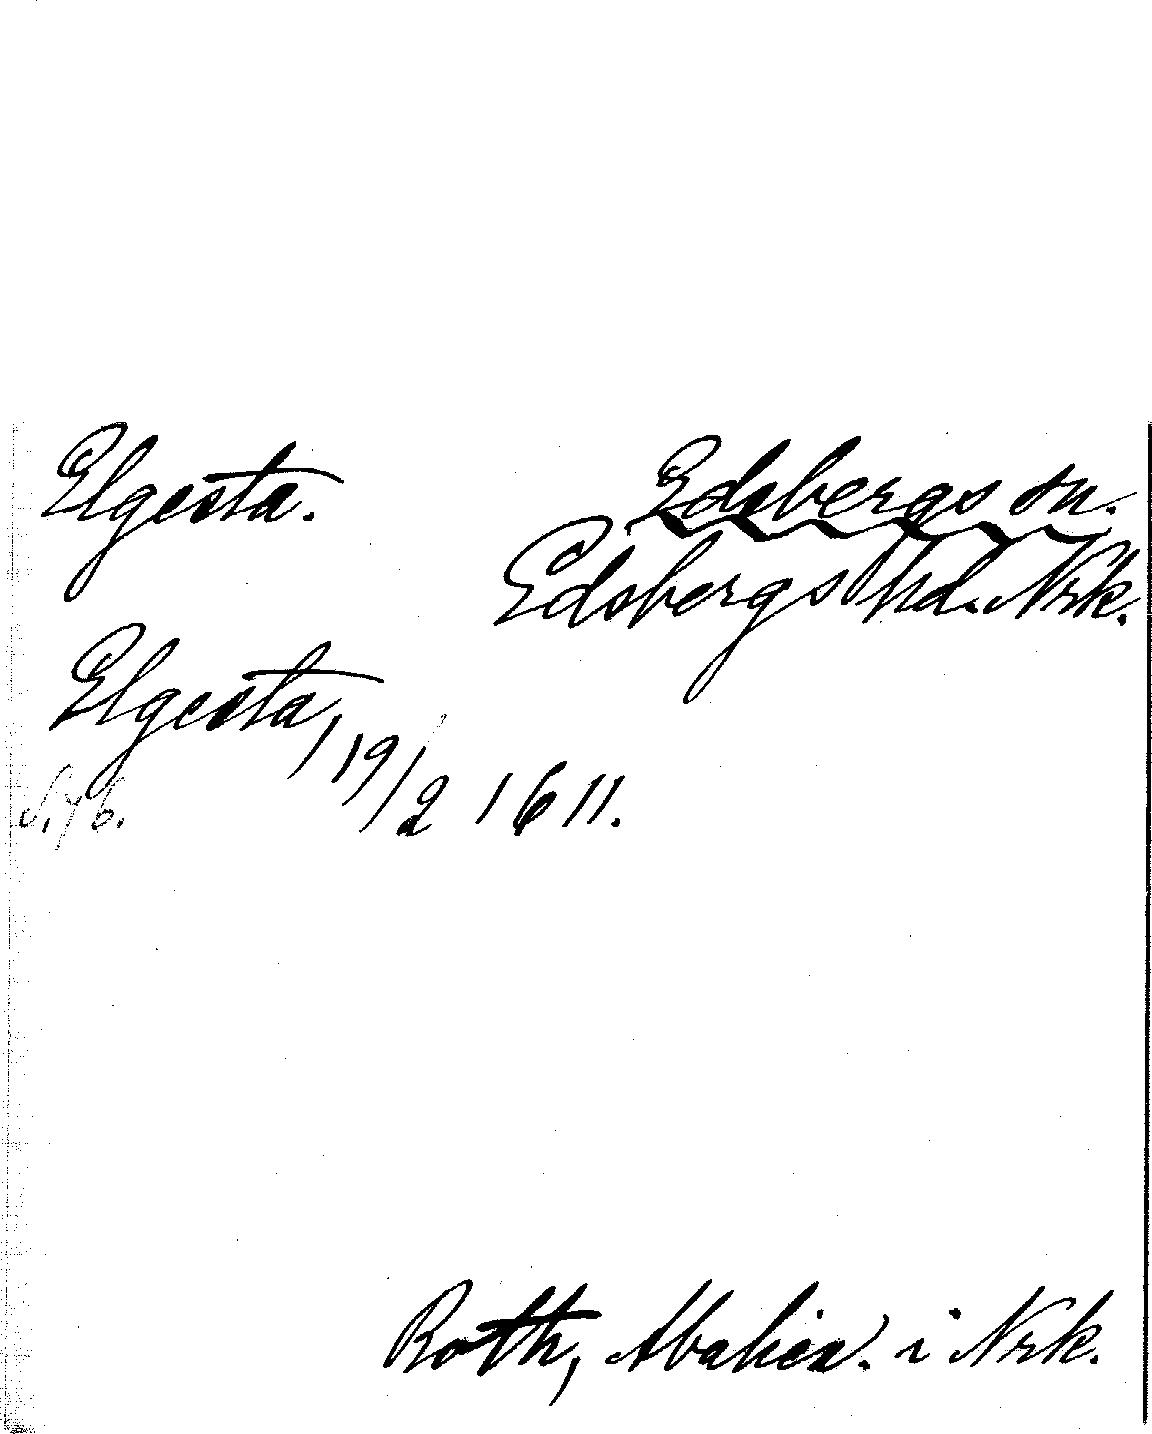 Elgesta. Edsbergs sn.
Edsbergs hd. Nrk.
Elgesta, 19/2 1611.
S. 76.
Roth, Abalien. i Nrk.